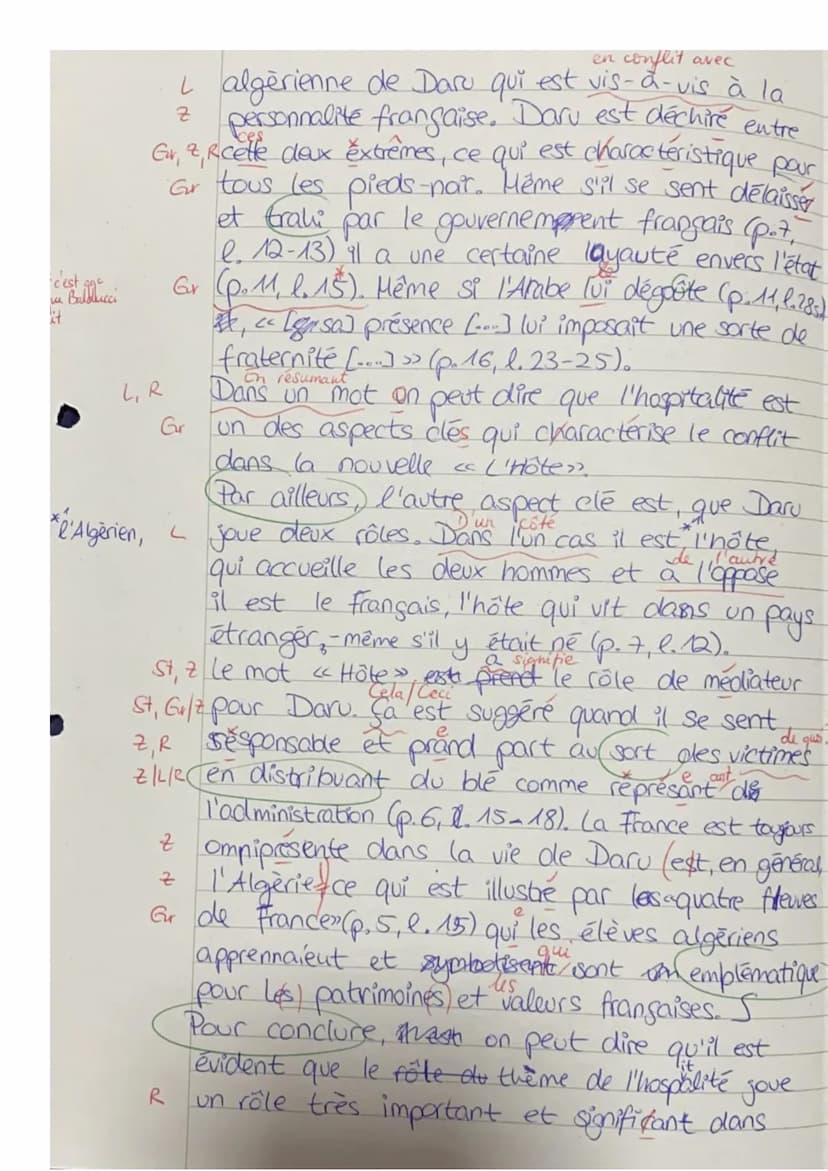 en conflit avec
L algérienne de Daru qui est vis-à-vis à la
Z personnalité française. Daru est déchiré entre
ces
Gr, Z, R cette deux éxtrêmes, ce qui est charactéristique pour
Gr tous les pieds-noir. Même s'il se sent délaisser
et trahi par le gouvernement français (p.7,
l. 12-13) il a une certaine loyauté envers l'état
c'est que
Balducci
it
Gr (p.11, l.15*). Même si l'Arabe lui dégoûte (p.11, l.28s)
« [sa] présence [...] lui imposait une sorte de
fraternité [...] » (p.16, l.23-25).
En résumant
L, R Dans un mot on peut dire que l'hospitalité est
Gr un des aspects clés qui charactérise le conflit
dans la nouvelle « L'Hôte».
Par ailleurs, l'autre aspect clé est, que Daru
D'un côté
*l'Algérien, L joue deux rôles. Dans l'un cas il est *l'hôte,
de l'autre
qui accueille les deux hommes et à l'oppose
il est le français, l'hôte qui vit dans un pays
étranger, -même s'il y était né (p.7, l.12).
a signifie
St, Z le mot « Hôte» est prend le rôle de médiateur
Cela/Ceci
St, Gr/Z pour Daru. Ça est suggéré quand il se sent
e de quoi
Z, R résponsable et prand part au sort des victimes
e ant
Z/L/R en distribuant du blé comme réprésant de
l'administration (p.6, l.15-18). La France est toujours
Z omniprésente dans la vie de Daru (est, en général,
Z l'Algérie) ce qui est illustré par les «quatre fleuves
e
Gr de France» (p.5, l.15) qui les élèves algériens
qui
apprennaient et symbolisent sont emblématique
les
pour les patrimoine(s) et valeurs françaises. S
Pour conclure, on peut dire qu'il est
it
évident que le rôle du thème de l'hospalité joue
R un rôle très important et significant dans